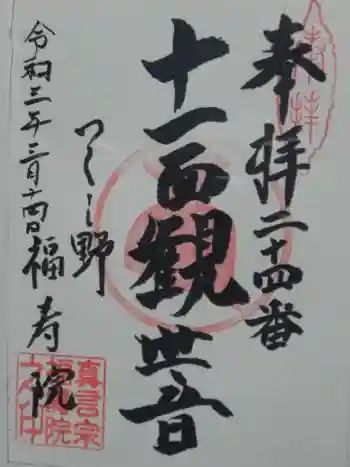 奉拝二十四番
十一面観世音
つくし野
福寿院
令和三年三月十四日
真言宗
福寿院